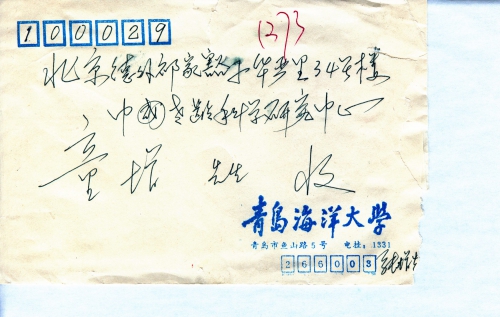 100029
1273
北京德外祁家豁子华严里34号楼
中国老龄科学研究中心
童增 先生 收
青岛海洋大学
青岛市鱼山路5号 电挂：1331
266003